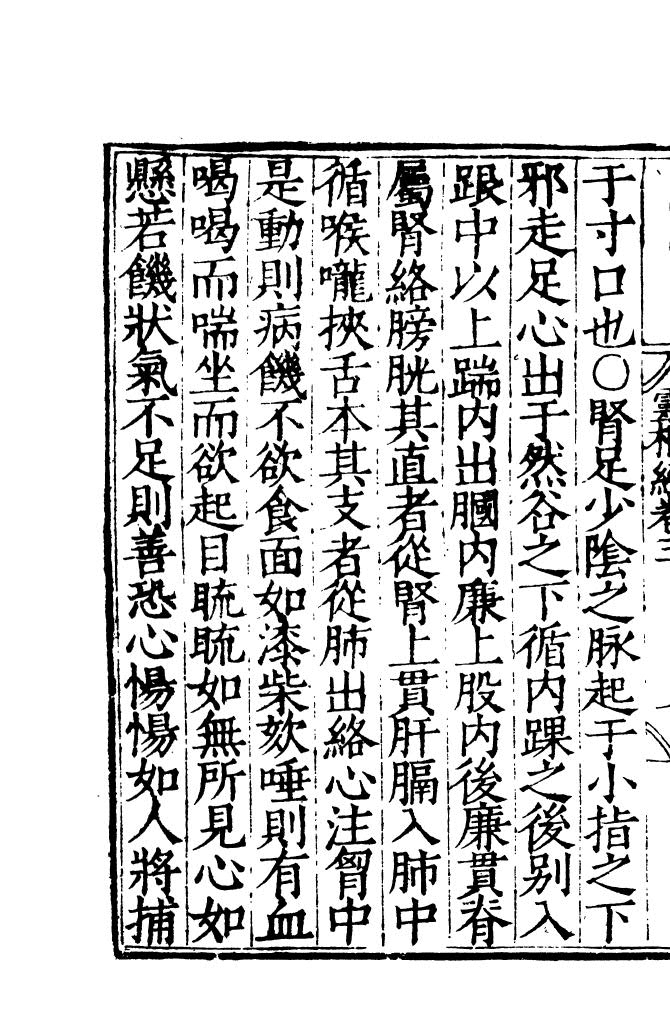 于寸口也○腎足少陰之脉起于小指之下
邪走足心出于然谷之下循内踝之後别入
跟中以上踹内出膕内廉上股内後廉貫脊
屬腎絡膀胱其直者從腎上貫肝膈入肺中
循喉嚨挾舌本其支者從肺出絡心注胷中
是動則病饑不欲食面如漆柴欬唾則有血
喝喝而喘坐而欲起目䀮䀮如無所見心如
懸若饑狀氣不足則善恐心惕惕如人將捕